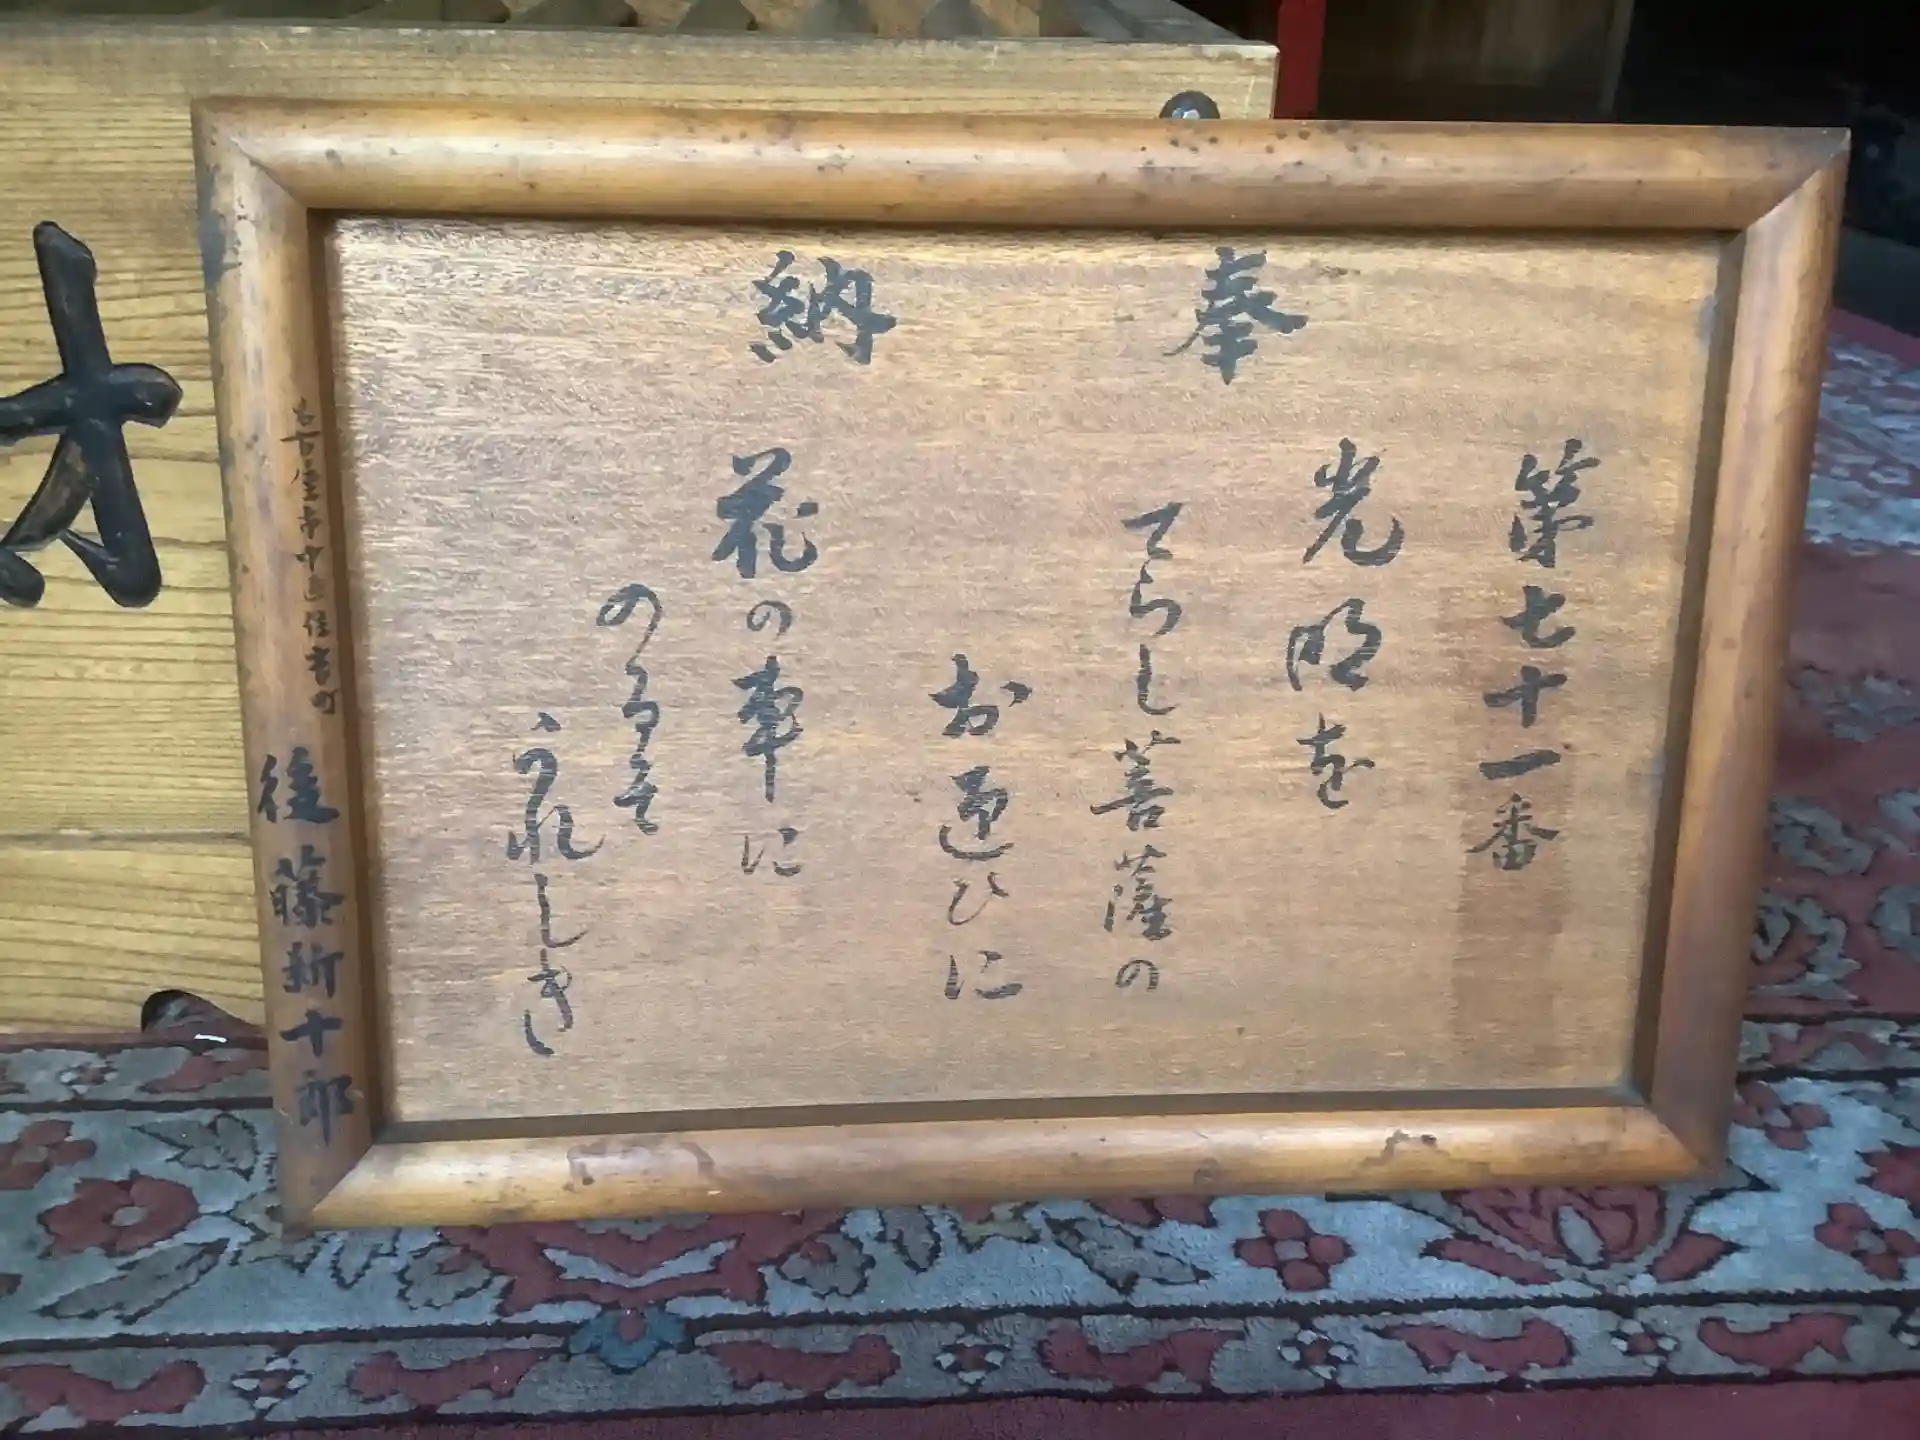 奉納
第七十一番
光明を
てらし菩薩の
お迎ひに
花の車に
のるそ
うれしき
名古屋市中区住吉町
後藤新十郎